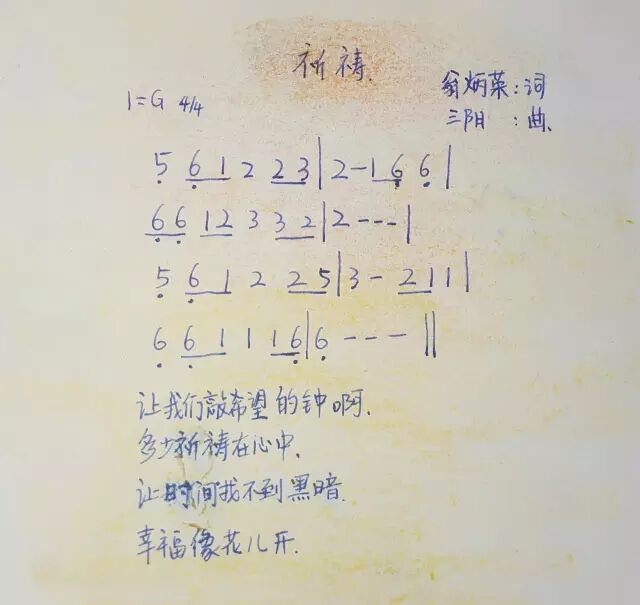 祈祷.
1=G 4/4
翁炳荣:词
三阳:曲.
5 6 1 2 2 3 | 2 - 1 6 6 |
6 6 1 2 3 3 2 | 2 - - - |
5 6 1 2 2 5 | 3 - 2 1 1 |
6 6 1 1 1 6 | 6 - - - ||
让我们敲希望的钟啊.
多少祈祷在心中.
让时间找不到黑暗.
幸福像花儿开.